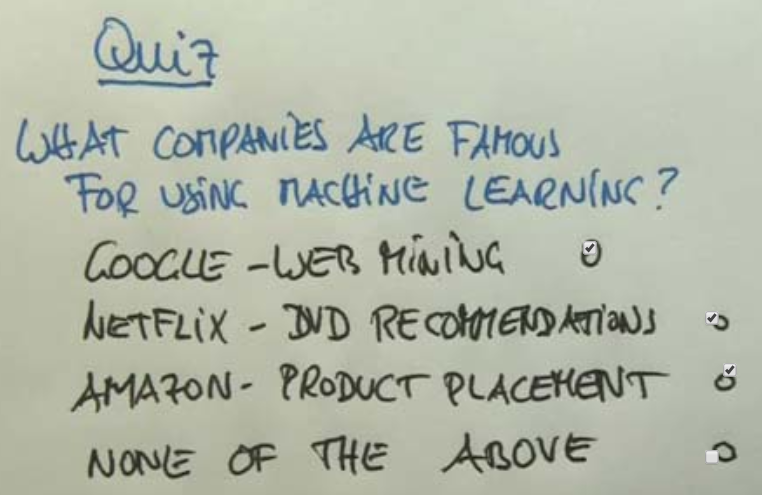 Quiz
WHAT COMPANIES ARE FAMOUS
FOR USING MACHINE LEARNING?
GOOGLE - WEB MINING
NETFLIX - DVD RECOMMENDATIONS
AMAZON - PRODUCT PLACEMENT
NONE OF THE ABOVE